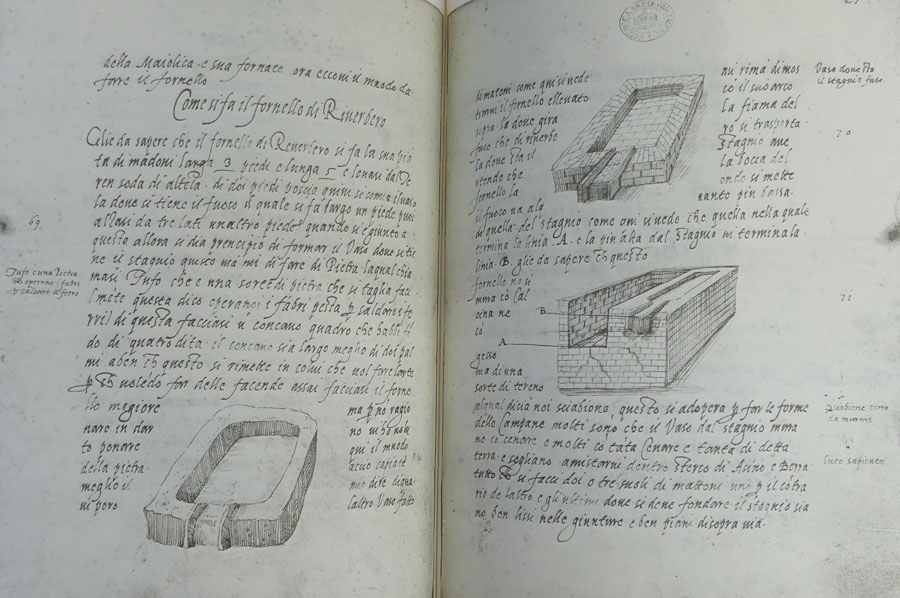 della Maiolica e sua fornace ora eccovi il modo da
fare il fornello
Come si fa il fornello di Riverbero
Gliè da sapere che il fornello di Reverbero si fa la sua pia
ta di madoni larga 3 piedi e lunga 5 e levasi dal Te
ren soda di alteza di doi piedi poscia
la dove si tiene il fuoco il quale si fa largo un piede
allasi da tre lati unaltro piede quando si è giunto a
questo allora si dia principio di formar il Vaso dove si tie
ne il stagnio questo
di fare di Pietra la qual chia
masi Tufo che è una sorte di pietra che si taglia faci
lmēte questa dico operano i fabri pesta p saldar i fe
rri) di questa facciasi ũ concavo quadro che habbi il
do di quatro dita il concavo sia largo meglio di doi pal
mi a ben ch questo si rimette in colui che vol fare larte
p ch voledo far delle facende assai facciasi il forne
llo magiore
nare in dar
to ponare
della pietra
meglio il
ui poro
ma p nō ragio
no ui
qui il muodo
acuo capiate
mo dire
laltro Vaso fatto
69
Tufo è una Pietra
ch operano i fabri
p saldare il ferro
di matoni come qui si vede
trovi il fornello ellevato
sopra la dove gira
fuco che di riverbe
la dove sta il
vtendo che
fornello la
il fuoco va alo
nui rima dimos
cō il suo arco
la fiama del
ro si trasporta
Stagnio ave
la bocca del
onde si mette
quanto piu bassa
Vaso dove sta
il stagnio fuso
70
di quella del stagnio come qui si vede che quella nella quale
termina la linia A e la piu alta dal Stagnio ui termina la
linia B gliè da sapere ch questo
fornello nō si
mma cō Cal
cina ne
cō
gesso
ma di una
sorte di tereno
B
A
71
al qual dicia noi sciabione, questo si adopera p far le forme
delle Campane molti sono che il Vaso dal stagnio mma
no cō cenare e molti cō tāta Cenare e tanta di detta
terra e sogliano amistarvi dentro sterco di Asino e Borra
tutto
si facci doi o tre suoli di mattoni uno p il cōtra
rio de laltro e gli ultimi dove si deve fondare il stagnio sia
no ben lisii nelle giunture e ben piani disopra via
Sciabione terra
da murare
luto sapiente